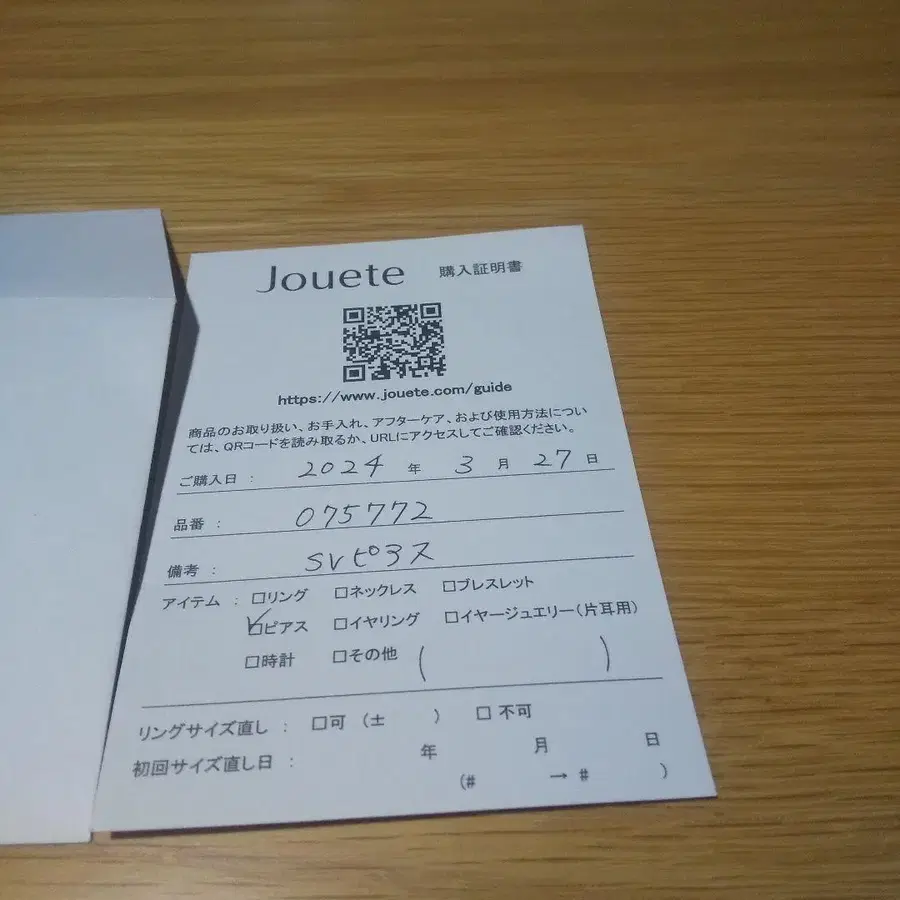 Jouete 購入証明書
https://www.jouete.com/guide
商品のお取り扱い、お手入れ、アフターケア、および使用方法につい
ては、QRコードを読み取るか、URLにアクセスしてご確認ください。
ご購入日 : 2024 年 3 月 27 日
品番 : 075772
備考 : SVピアス
アイテム : □リング □ネックレス □ブレスレット
☑ピアス □イヤリング □イヤージュエリー(片耳用)
□時計 □その他 ( )
リングサイズ直し : □可 (± ) □不可
初回サイズ直し日 : 年 月 日
(# → # )